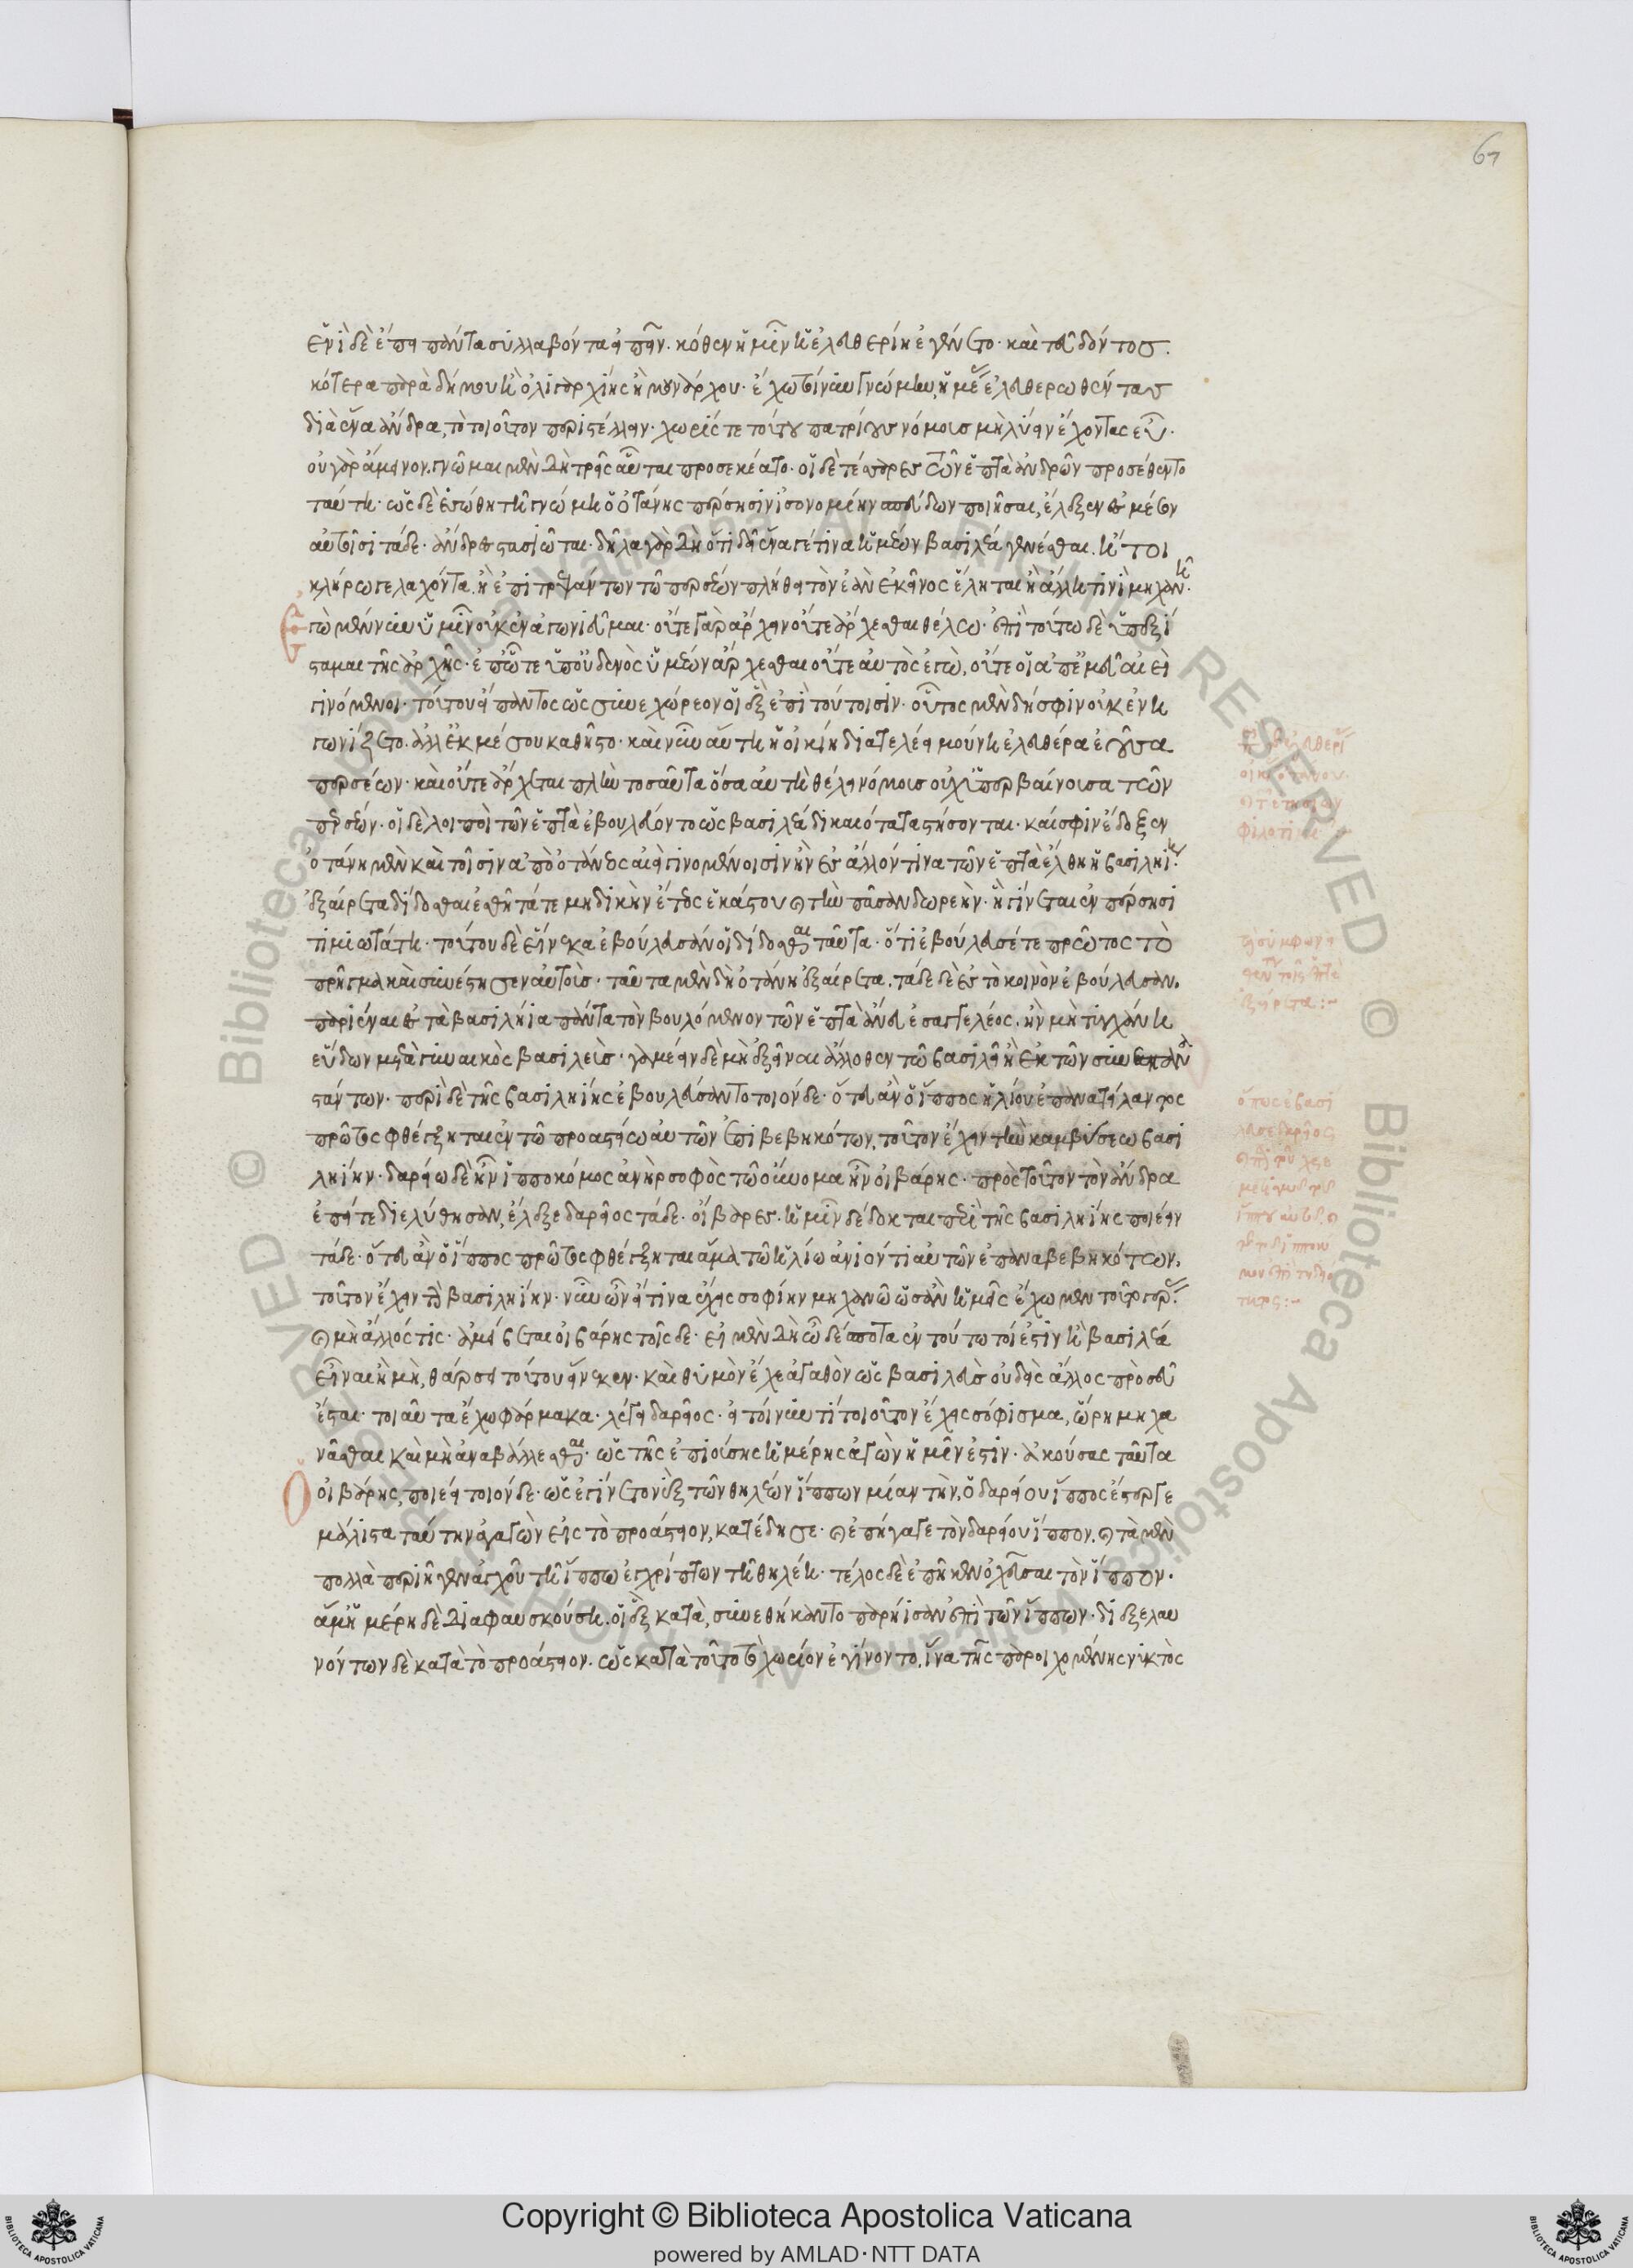 67
ἑνὶ δὲ ἔπει πάντα συλλαβόντα εἰπεῖν. κόθεν ἡμῖν ἡ ἐλευθερίη ἐγένετο. καὶ τεῦ δόντος.
κότερα παρὰ δήμου ἢ ὀλιγαρχίης ἢ μουνάρχου. ἔχω τοίνυν γνώμην, ἡμέας ἐλευθερωθέντας
διὰ ἕνα ἄνδρα, τὸ τοιοῦτον περιστέλλειν. χωρίς τε τούτου πατρίους νόμους μὴ λύειν ἔχοντας εὖ.
οὐ γὰρ ἄμεινον. γνῶμαι μὲν δὴ τρεῖς αὗται προσεκέατο. οἱ δὲ τέσσαρες τῶν ἑπτὰ ἀνδρῶν προσέθεντο
ταύτη. ὡς δὲ ἑσσώθη τῆ γνώμη ὁ ὀτάνης πέρσησιν ἰσονομίην σπεύδων ποιῆσαι, ἔλεξεν ἐς μέσον
αὐτοῖσι τάδε. ἄνδρες στασιῶται. δῆλα γὰρ δὴ ὅτι δεῖ ἕνα γέ τινα ἡμέων βασιλέα γενέσθαι. ἤτοι
κλήρω γε λαχόντα. ἢ ἐπιτρεψάντων τῶ περσέων πλήθει τὸν ἐὰν ἐκεῖνος ἕληται ἢ ἄλλη τινὶ μηχανῆ.
ἐγὼ μέν νυν ὑμῖν οὐκ ἐναγωνιεῦμαι. οὔτε γὰρ ἄρχειν οὔτε ἄρχεσθαι θέλω. ἐπὶ τούτω δὲ ὑπεξί
σταμαι τῆς ἀρχῆς. ἐπ' ὧτε ὑπ' οὐδενὸς ὑμέων ἄρχεσθαι οὔτε αὐτὸς ἐγὼ, οὔτε οἱ ἀπ' ἐμεῦ αἰεὶ
γινόμενοι. τούτου εἴπαντος ὡς συνεχώρεον οἱ ἓξ ἐπὶ τούτοισιν. οὗτος μὲν δή σφιν οὐκ ἐνη
γωνίζετο. ἀλλ' ἐκ μέσου καθῆστο. καὶ νῦν αὕτη ἡ οἰκίη διατελέει μούνη ἐλευθέρα ἐοῦσα
περσέων. καὶ οὔτε ἄρχεται πλὴν τοσαῦτα ὅσα αὐτὴ θέλει νόμους οὐχ ὑπερβαίνουσα τῶν
περσέων. οἱ δὲ λοιποὶ τῶν ἑπτὰ ἐβουλεύοντο ὡς βασιλέα δικαιότατα στήσονται. καί σφιν ἔδοξεν
ὀτάνη μὲν καὶ τοῖσιν ἀπὸ ὀτάνεος αἰεὶ γινομένοισιν ἢν ἐς ἄλλον τινὰ τῶν ἑπτὰ ἔλθη ἡ βασιληίη
ἐξαίρετα δίδοσθαι ἐσθῆτά τε μηδικὴν ἔτεος ἑκάστου καὶ τὴν πᾶσαν δωρεὴν. ἣ γίνεται ἐν πέρσησι
τιμιωτάτη. τούτου δὲ εἵνεκα ἐβούλευσαν οἱ δίδοσθαι ταῦτα. ὅτι ἐβούλευσέ τε πρῶτος τὸ
πρῆγμα καὶ συνέστησεν αὐτοὺς. ταῦτα μὲν δὴ ὀτάνη ἐξαίρετα. τάδε δὲ ἐς τὸ κοινὸν ἐβούλευσαν.
παριέναι ἐς τὰ βασιλήια πάντα τὸν βουλόμενον τῶν ἑπτὰ ἄνευ ἐσαγγελέος. ἢν μὴ τυγχάνη
εὕδων μετὰ γυναικὸς βασιλεὺς. γαμέειν δὲ μὴ ἐξεῖναι ἄλλοθεν τῶ βασιλεῖ ἢ ἐκ τῶν συνεπανα
στάντων. περὶ δὲ τῆς βασιληίης ἐβουλεύσαντο τοιόνδε. ὅτευ ἂν ὁ ἵππος ἡλίου ἐπανατείλαντος
πρῶτος φθέγξηται ἐν τῶ προαστείω αὐτῶν ἐπιβεβηκότων. τοῦτον ἔχειν τὴν καμβύσεω βασι
ληίην. δαρείω δὲ ἦν ἱπποκόμος ἀνὴρ σοφὸς τῶ οὔνομα ἦν οἰβάρης. πρὸς τοῦτον τὸν ἄνδρα
ἐπείτε διελύθησαν, ἔλεξε δαρεῖος τάδε. οἴβαρες. ἡμῖν δέδοκται περὶ τῆς βασιληίης ποιέειν
τάδε. ὅτευ ἂν ὁ ἵππος πρῶτος φθέγξηται ἅμα τῶ ἡλίω ἀνιόντι αὐτῶν ἐπαναβεβηκότων.
τοῦτον ἔχειν τὴν βασιληίην. νῦν ὦν εἴ τινα ἔχεις σοφίην μηχανῶ ὡς ἂν ἡμεῖς ἔχωμεν τοῦτο τὸ γέρας
καὶ μὴ ἄλλός τις. ἀμείβεται οἰβάρης τοῖσδε. εἰ μὲν δὴ ὦ δέσποτα ἐν τούτω τοί ἐστιν ἢ βασιλέα
εἶναι ἢ μὴ, θάρσει τούτου εἵνεκεν. καὶ θυμὸν ἔχε ἀγαθὸν ὡς βασιλεὺς οὐδεὶς ἄλλος πρὸ σεῦ
ἔσται. τοιαῦτα ἔχω φάρμακα. λέγει δαρεῖος. εἰ τοίνυν τι τοιοῦτον ἔχεις σόφισμα, ὥρη μηχα
νᾶσθαι καὶ μὴ ἀναβάλλεσθαι. ὡς τῆς ἐπιούσης ἡμέρης ἀγὼν ἡμῖν ἐστιν. ἀκούσας ταῦτα
ὁ οἰβάρης, ποιέει τοιόνδε. ὡς ἐγίνετο νὺξ τῶν θηλέων ἵππων μίαν τὴν, ὁ δαρείου ἵππος ἔστεργε
μάλιστα ταύτην ἀγαγὼν εἰς τὸ προάστειον, κατέδησε. καὶ ἐπήγαγε τὸν δαρείου ἵππον. καὶ τὰ μὲν
πολλὰ περιῆγεν ἀγχοῦ τῆ ἵππω ἐγχρίπτων τῆ θηλέη. τέλος δὲ ἐπῆκεν ὀχεῦσαι τὸν ἵππον.
ἅμ' ἡμέρη δὲ διαφαυσκούση. οἱ ἓξ κατὰ, συνεθήκαντο παρῆσαν ἐπὶ τῶν ἵππων. διεξελαυ
νόντων δὲ κατὰ τὸ προάστειον. ὡς κατὰ τοῦτο τὸ χωρίον ἐγίνοντο, ἵνα τῆς παροιχομένης νυκτὸς
Copyright © Biblioteca Apostolica Vaticana
powered by AMLAD·NTT DATA